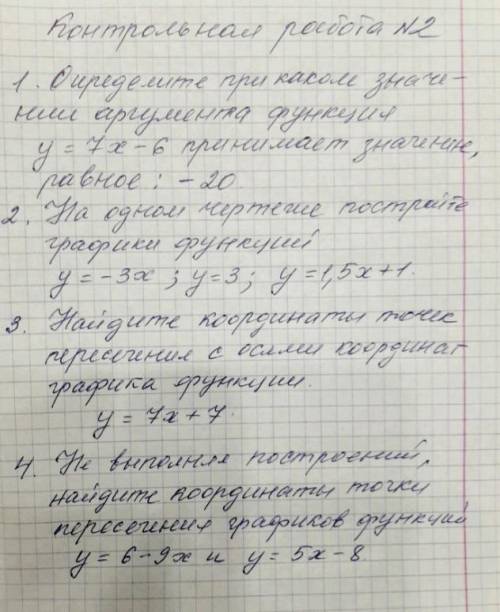 Контрольная работа №2
1. Определите при каком значе-
нии аргумента функция
y = 7x - 6 принимает значение,
равное: - 20.
2. На одном чертеже постройте
графики функций
y = -3x ; y = 3; y = 1,5x + 1.
3. Найдите координаты точек
пересечения с осями координат
графика функции.
y = 7x + 7.
4. Не выполняя построений,
найдите координаты точки
пересечения графиков функций
y = 6 - 9x и y = 5x - 8